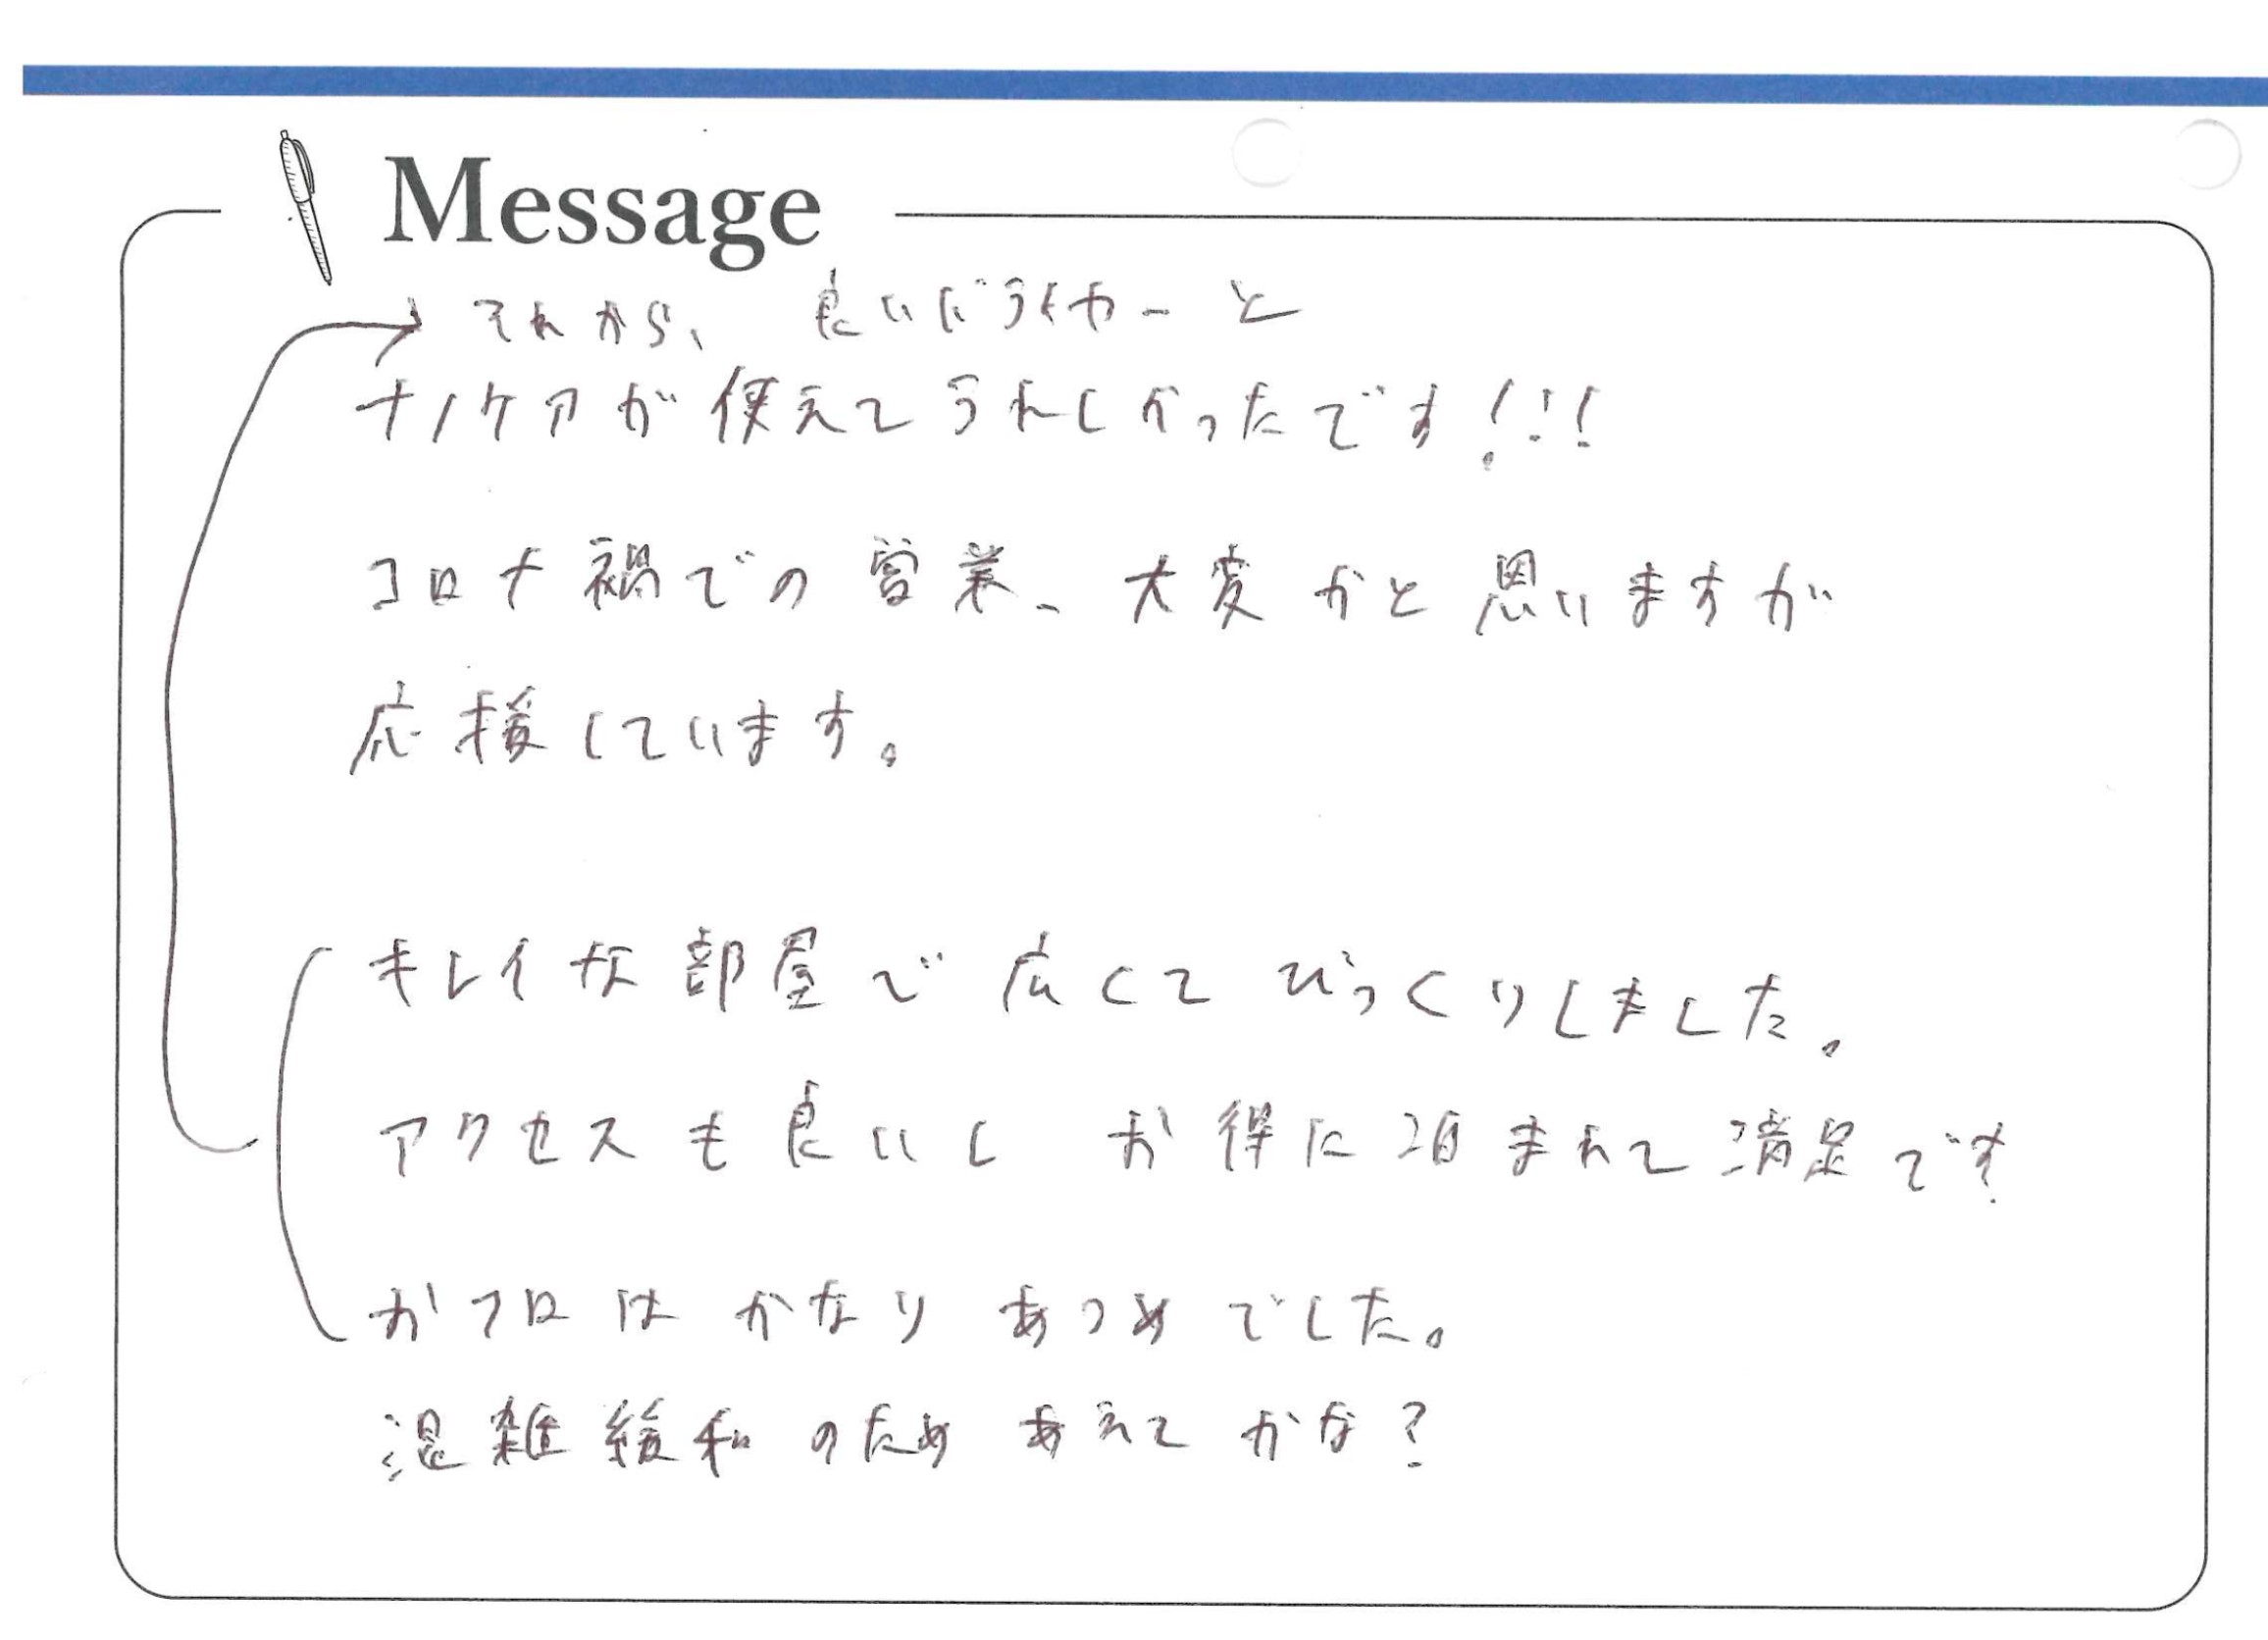 Message
それから、良いドライヤーと
ナノケアが使えてうれしかったです!!!
コロナ禍での営業、大変かと思いますが
応援しています。
キレイな部屋で広くてびっくりしました。
アクセスも良いしお得に泊まれて満足です
おフロはかなりあつめでした。
混雑緩和のためあえてかな?